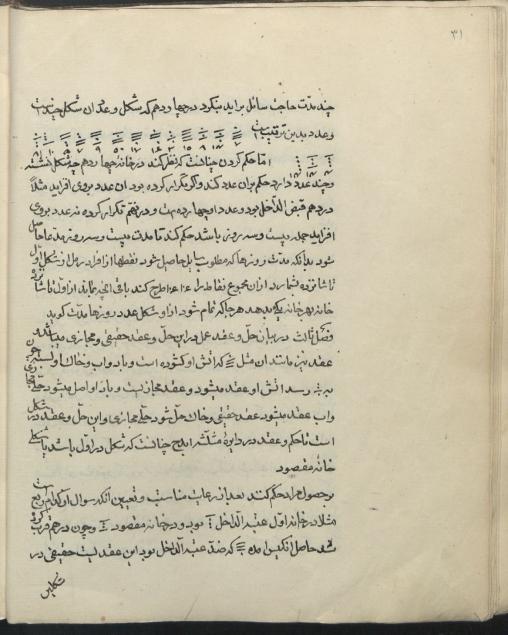 ۳۱
چند مدّت حاجت سائل براید بنگرد در چهاردهم که شکل و عدد ان شکل چیست
و عدد بدین ترتیبست
اما حکم کردن چنانست که نظر کند در خانه چهاردهم چه شکل نشسته
و چند عدد دارد حکم بران عدد کند و اگر تکرار کرده بود ان عدد بروی افزاید مثلاً
در دهم قبض الدّاخل بود و عدد او چهارده است و در هفتم تکرار کرده نه عدد بروی
افزاید جمله بیست و سه روز باشد حکم کند تا مدت بیست و سه روز مدعا حاصل
شود بدانکه مدت روزها که مطلوب سایل حاصل شود نقطها از افراد رمل از شکل اول
تا شانزده شمارد از ان مجموع نقاط را طرح کند باقی انچه بماند از اول تا شانزده
خانه بهر خانه یکی بدهد هر جا که تمام شود از او شکل عدد روزها مدت کوید
فصل ثالث در بیان حلّ و عقد عمل در این حلّ و عقد حقیقی و مجازی میباشد
عقد نیز مانند ان مثل که اتش او کشوده است و باد و اب و خاک او بسته چون
رسد اتش او عقد میشود و عقد مجازیست و باد او اصل میشود حلّ مجازی
و اب عقد میشود عقد حقیقی و خاک حلّ شود حلّ مجازی و این حلّ و عقد در شکل
است تا حکم و عقد در دایرهٔ مثلثه ابدح چنانست که شکل در اول باشد یا شکل
خانه مقصود
بر حصول مراد حکم کنند بعد از رعایت مناسبت و تعیین انکه سوال او کدام مربع است
مثلا در خانه اول عتبة الداخل بود و در خانه مقصود و چون در هم ضرب کرده
شد حاصل انکیس امده که ضدّ عتبة الدّاخل بود این عقد نیست حقیقی در
شکلین